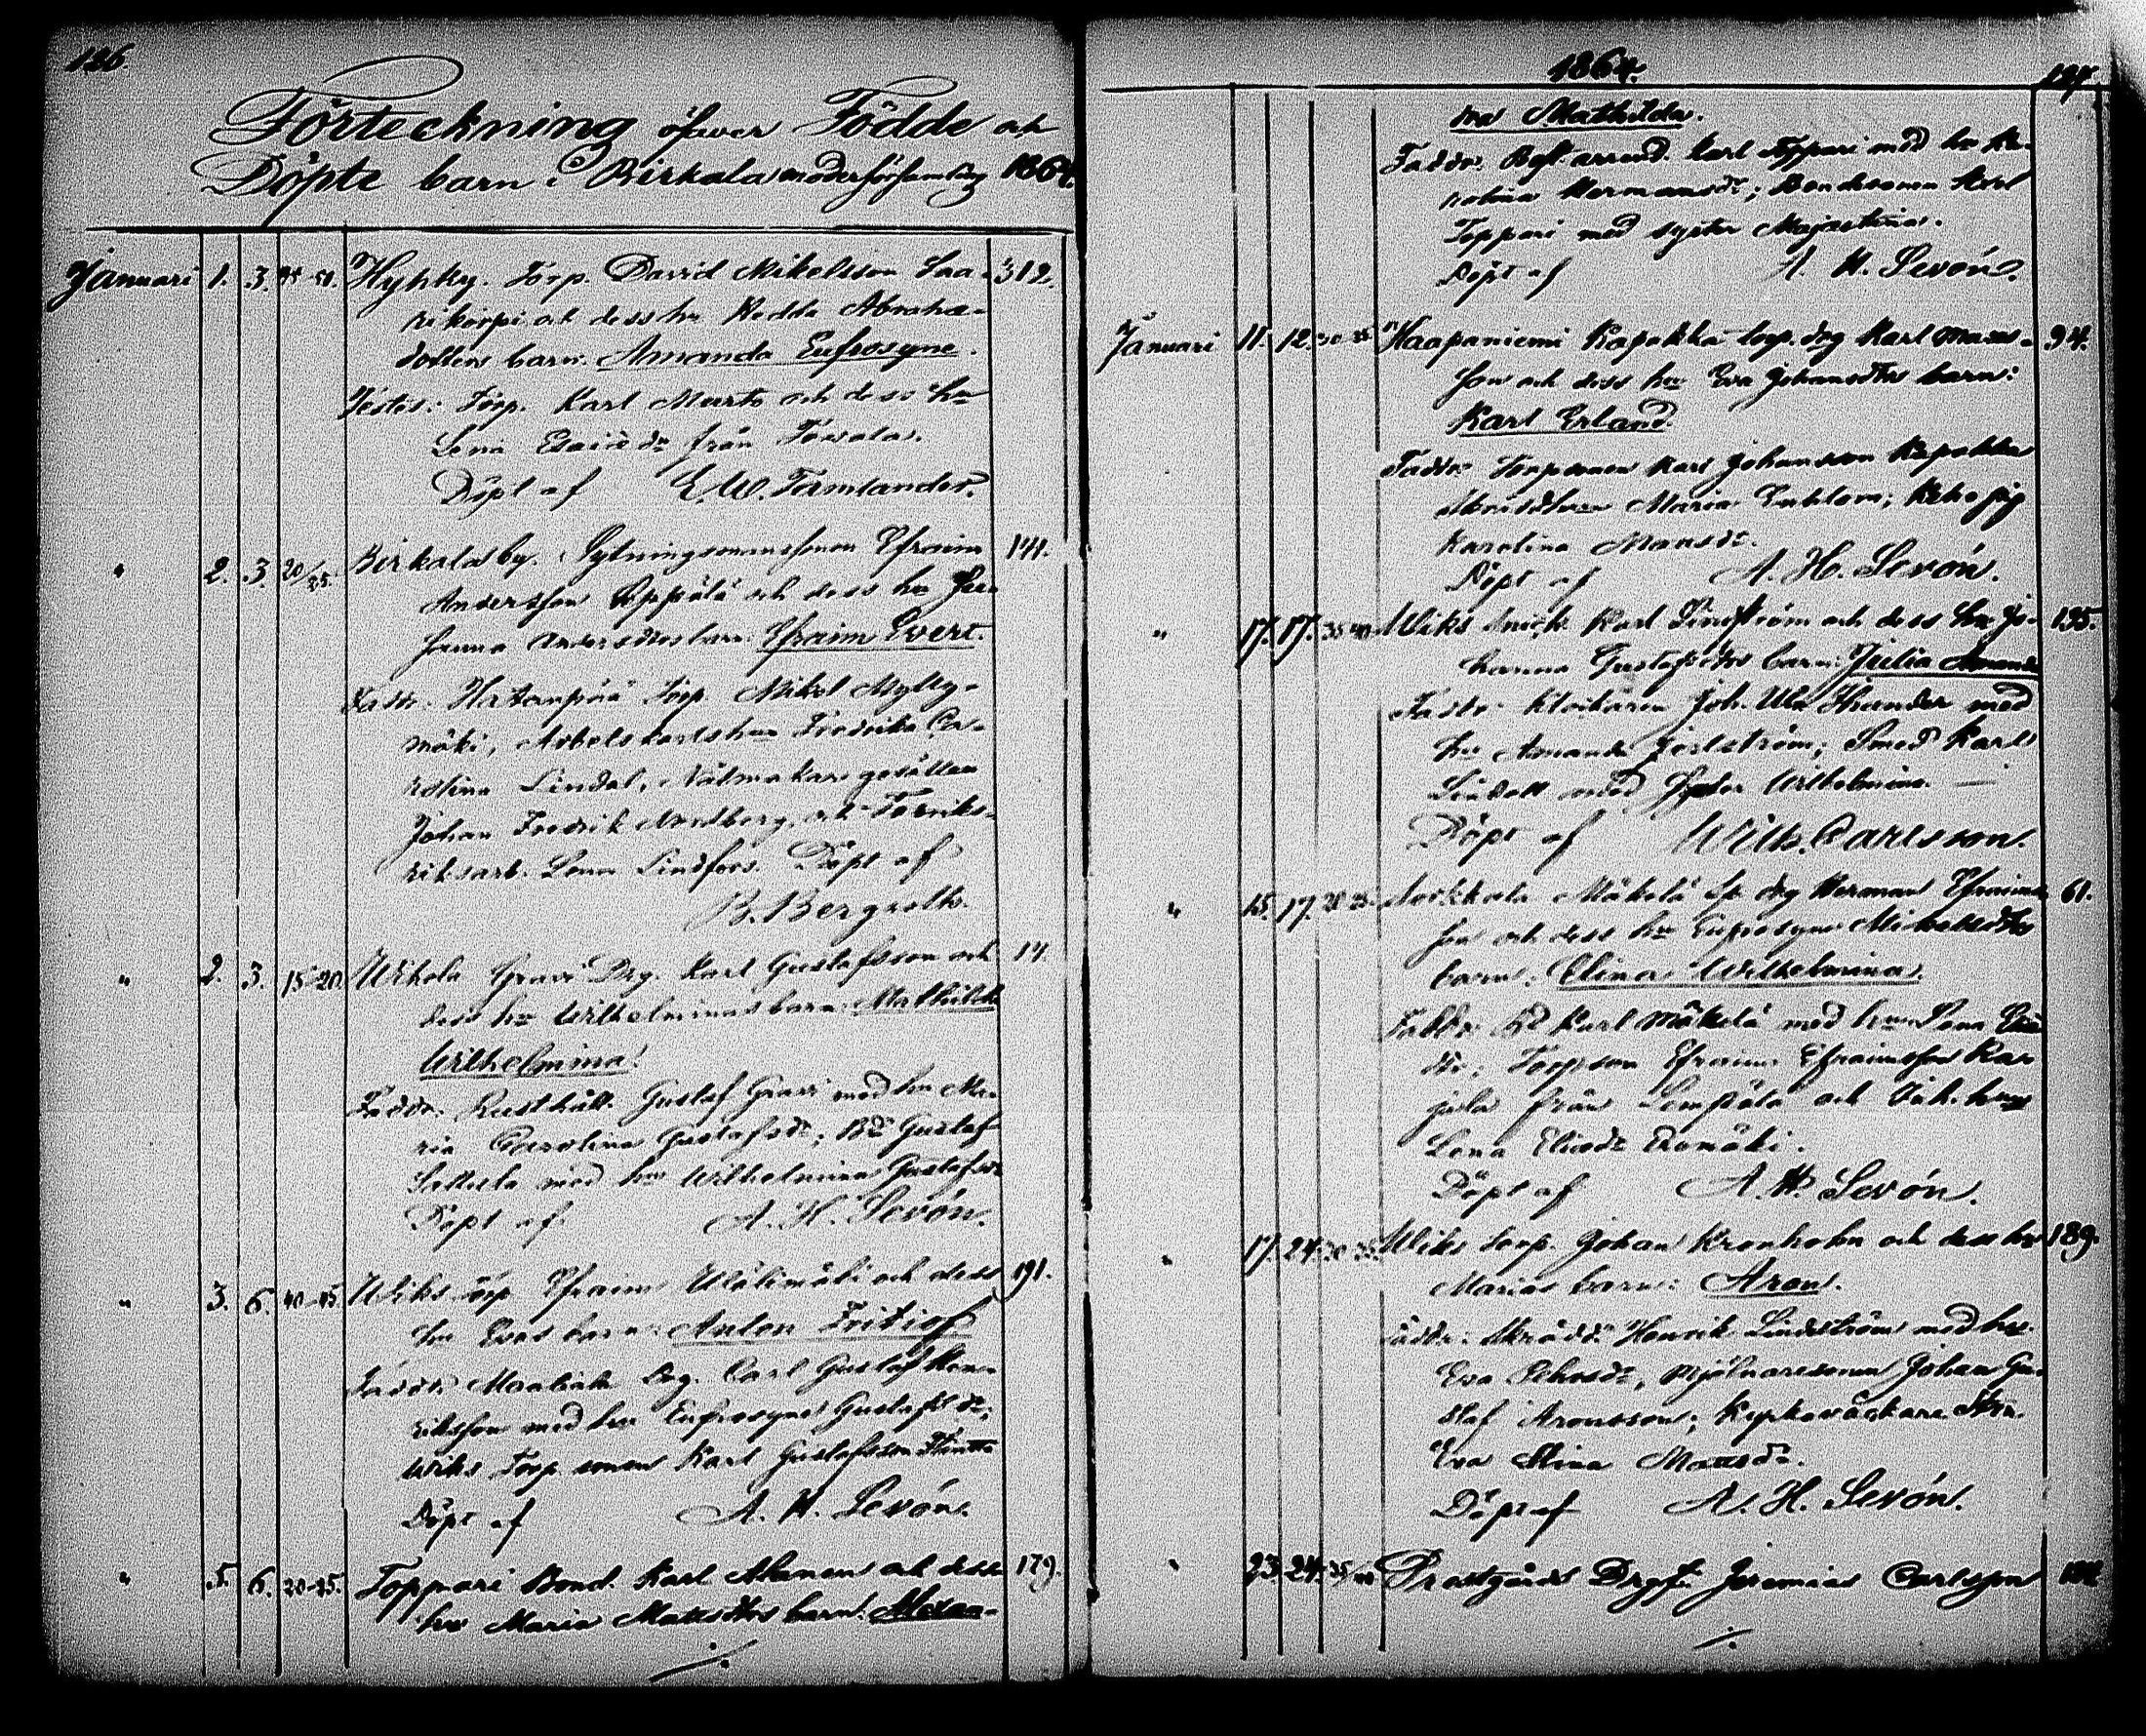 126.
Förteckning öfwer Födde och
Döpte barn i Birkala moderförsamling 1864.
Januari 1. 3. 45-50. Hyhky. Torp. David Mikelsson Saa- 312.
rikorpi och dess hu Hedda Abraha-
dotters barn: Amanda Eufrosyne.
Testes: Torp. Karl Murto och dess hu
Lena från
Döpt af E. W. Tamlander.
" 2. 3. 20/25. Birkala by. Efraim 141.
Andersson Seppälä och dess hu Jo-
hanna Andersdtrs barn: Efraim Evert.
Faddr: Hatanpää Torp. Mikel Mylly-
mäki, Arbetskarls hu Fredrika Ca-
rolina Lindal, gesällen
Johan Fredrik Nordberg, och Fabriks-
riksarb. Lena Lindfors. Döpt af
B. Bergroth.
" 2. 3. 15-20. Wihola Drg. Karl Gustafsson och 14.
dess hu Wilhelminas barn: Mathilda
Wilhelmina.
Faddr: Rusthåll. Gustaf med hu Ma-
ria Carolina Gustafsdr; Bd Gustaf
med hu Wilhelmina Gustafsdr
Döpt af A. H. Sevón.
" 3. 6. 40-45. Wiks torp. Efraim Wälimäki och dess 191.
hu Evas barn: Anton Fritiof
Faddr: Drg. Carl Gustaf Hen-
riksson med hu Eufrosyne Gustafsdr;
Wiks Torp. sonen Karl Gustafsson
Döpt af A. H. Sevón.
" 5. 6. 20-25. Toppari Bond. Karl och dess 179.
hu Maria Mattsdtrs barn: Alexan-
./.
1864. 127.
dra Mathilda.
Faddr: arrend. Karl Toppari med hu Ka-
rolina Hermansdr; Bondesonen
Toppari med syster Majastina.
Döpt af A. H. Sevón.
Januari 11. 12. 30-35. Haapaniemi torp. drg Karl 94.
son och dess hu Eva Johansdtrs barn:
Karl Erland.
Faddr: Torpsonen Karl Johansson
Maria pig
Karolina Mansdr.
Döpt af A. H. Sevón.
" 17. 17. 35-40. Wiks Karl Lindström och dess hu Jo- 195.
hanna Gustafsdtrs barn: Julia Amanda
Faddr: Klockaren Joh. med
hu Amanda; Smed Karl
Lindell med syster Wilhelmina.
Döpt af Wilh. Carlsson.
" 15. 17. 20-25. Mäkelä drg Herman Efraims- 61.
son och dess hu Eufrosyne
barn: Elina Wilhelmina.
Faddr: Bd Karl Mäkelä med hu Lena
dr; Torp.son Efraim Efraimsson Kar-
jala från Lempäla och Inh. hu
Lena Eliasdr.
Döpt af A. H. Sevón.
" 17. 24. 30-35. Wiks torp. Johan Kronholm och dess hu 189.
Marias barn: Aron.
Faddr: Skrädd. Henrik Lindström med hu
Eva; Mjölnaresonen Johan Gu-
staf Aronsson; Kyrkoväktare
Eva Stina Mattsdr.
Döpt af A. H. Sevón.
" 23. 24. 35/40. Prostgårds Drgf. Jeremias Carlsson
./.